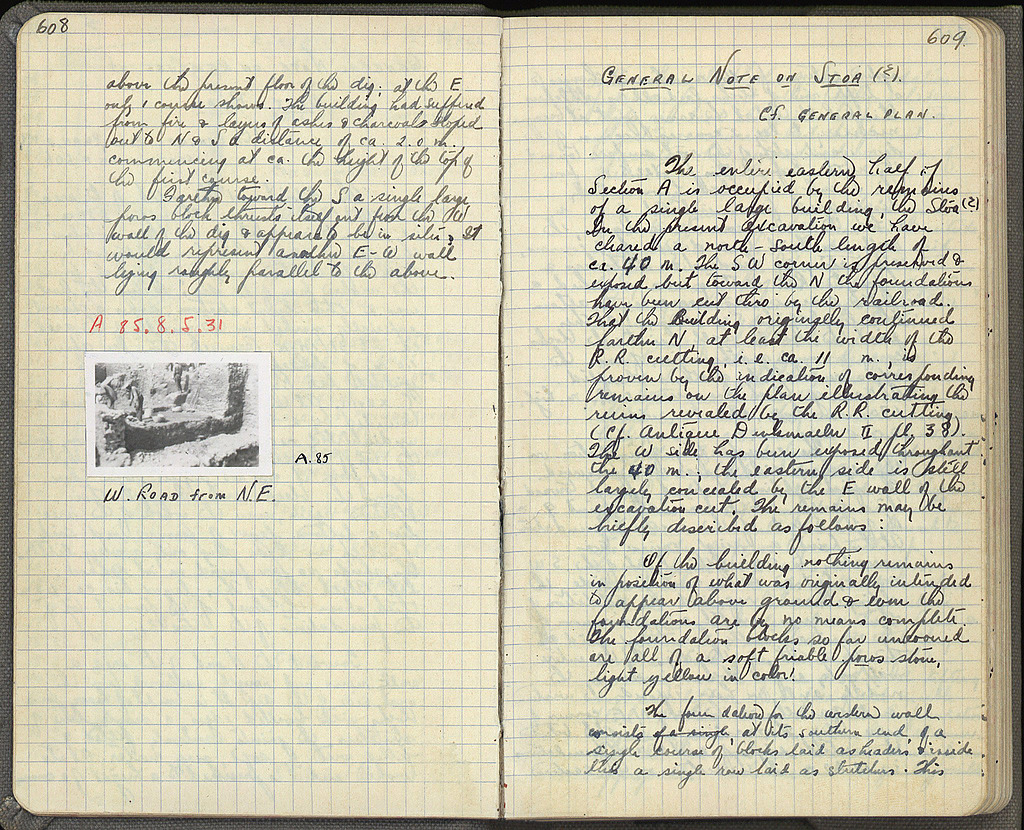 608
above the present floor of the dig. at the E
only 1 course shows. The building had suffered
from fire & layers of ashes & charcoal sloped
out to N & S a distance of ca. 2.0 m.
commencing at ca. the height of the top of
the first course.
Farther toward the S a single large
poros block thrusts itself out from the W
wall of the dig & appears to be in situ. It
would represent another E-W wall
lying roughly parallel to the above.
A 85.8.5.31
A.85
W. ROAD from N.E.
609
GENERAL NOTE ON STOA (ξ).
Cf. GENERAL PLAN.
The entire eastern half of
Section A is occupied by the remains
of a single large building, the Stoa (ξ)
In the present excavation we have
cleared a north-south length of
ca. 40 m. The SW corner is preserved &
exposed but toward the N the foundations
have been cut thro by the railroad.
That the Building originally continued
farther N, at least the width of the
R.R. cutting, i.e. ca. 11 m., is
proven by the indication of corresponding
remains on the plan illustrating the
ruins revealed by the R.R. cutting
(Cf. Antique Denkmaeler II pl. 38).
The W side has been exposed throughout
the 40 m.; the eastern side is still
largely concealed by the E wall of the
excavation cut. The remains may be
briefly described as follows:
Of the building nothing remains
in position of what was originally intended
to appear above ground & even the
foundations are by no means complete.
The foundation blocks so far uncovered
are all of a soft friable poros stone,
light yellow in color.
The foundation for the western wall
consists of a single, at its southern end, of a
single course of blocks laid as headers & inside
this a single row laid as stretchers. This